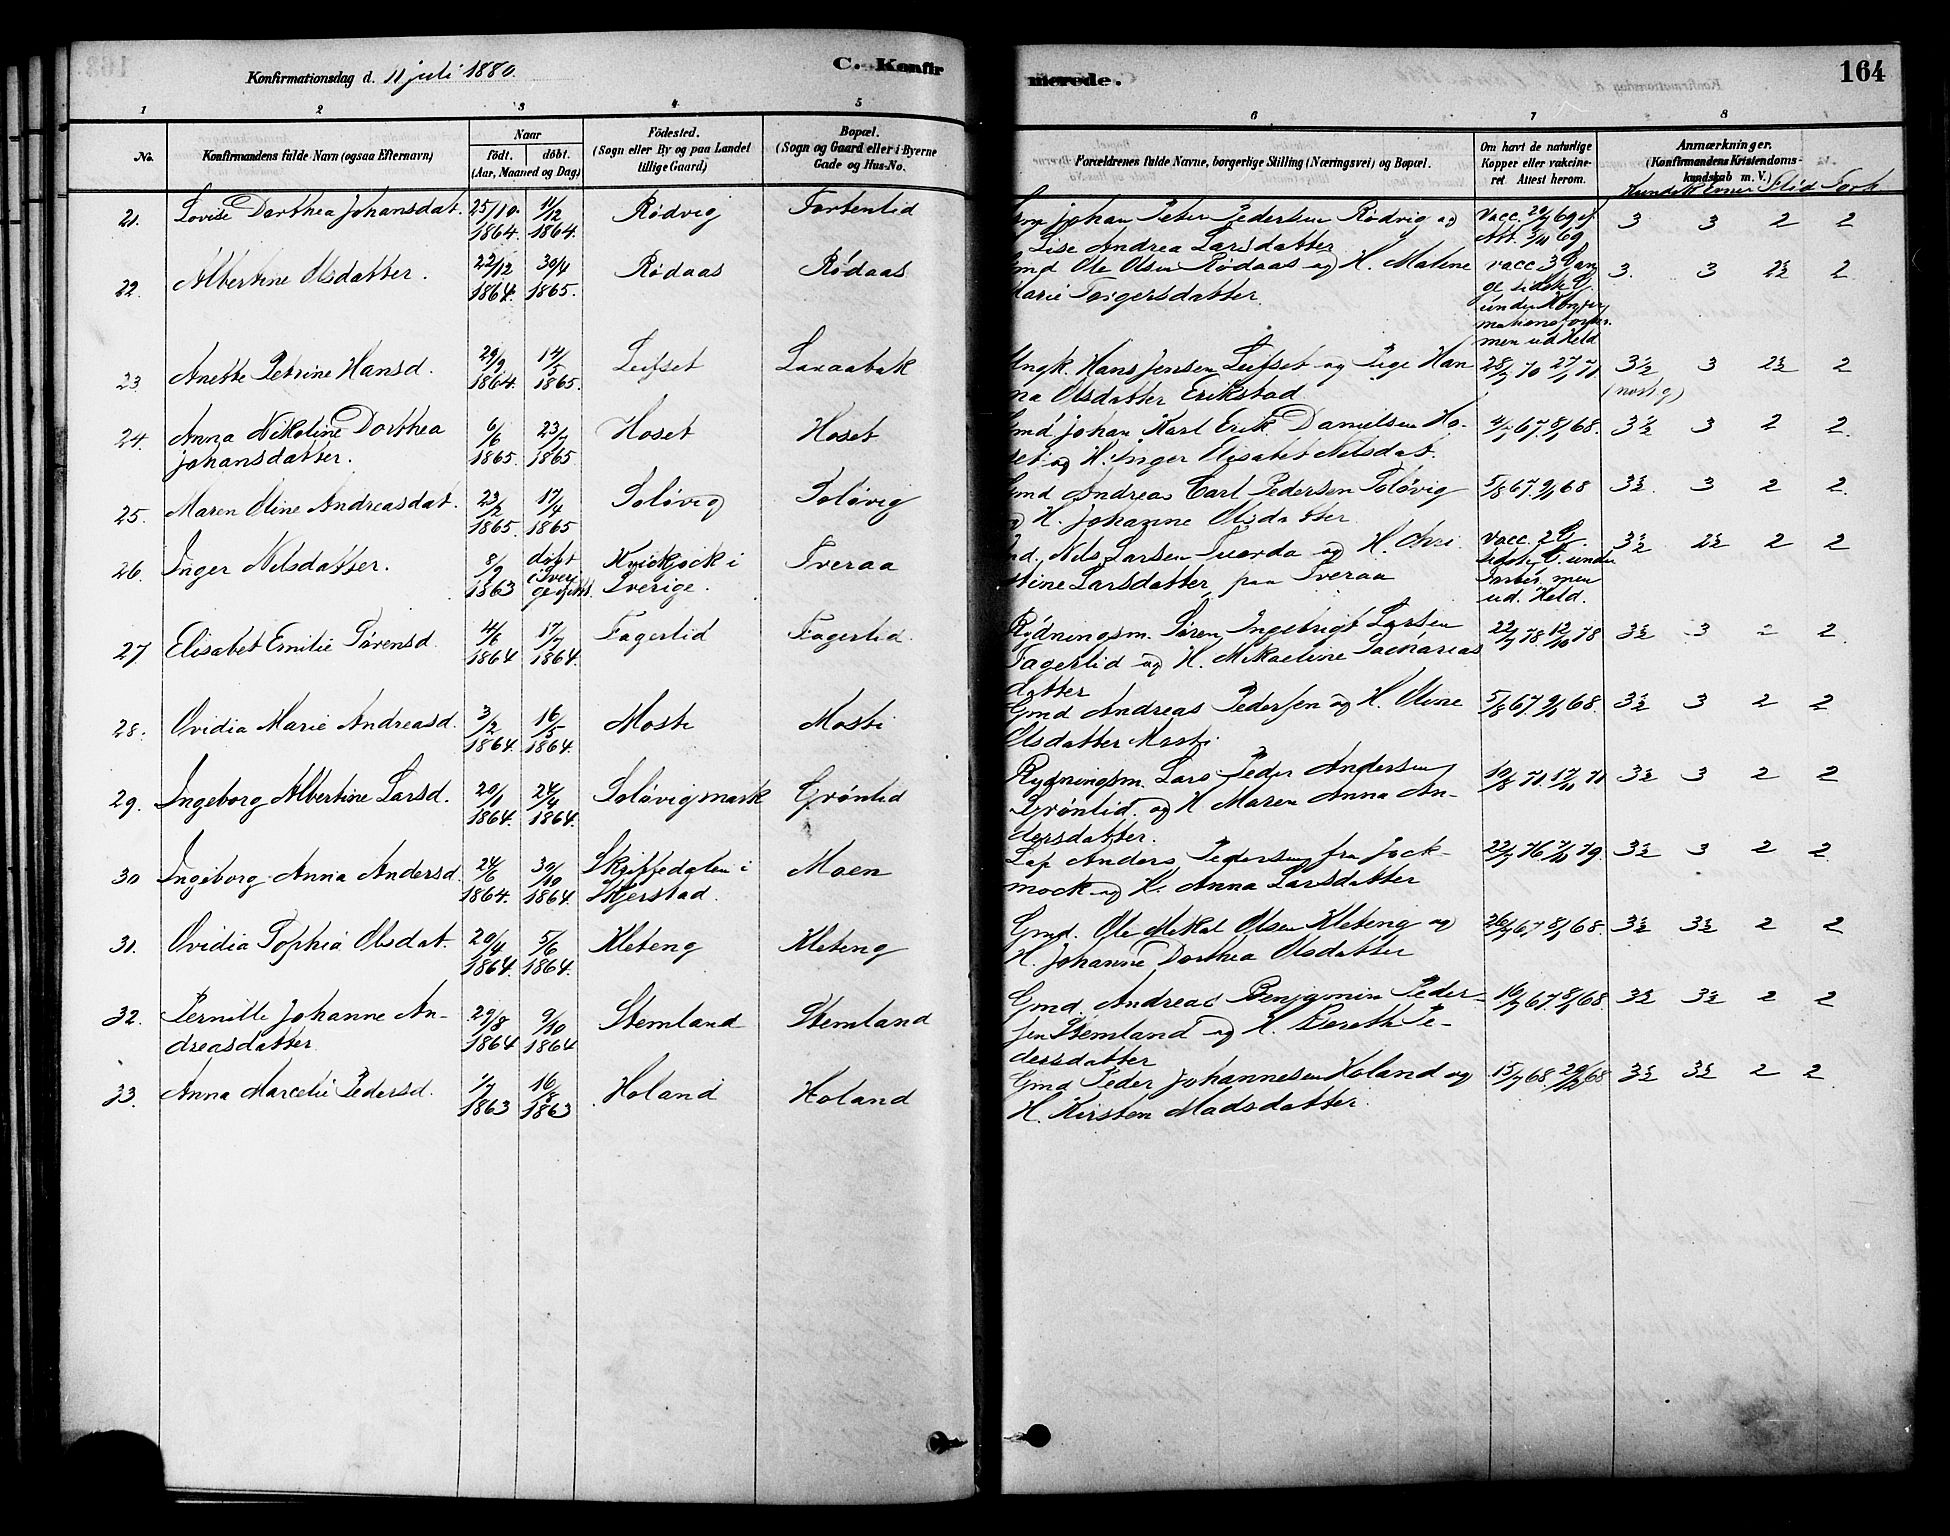 Konfirmationsdag d. 11 juli 1880.
C. Konfir
merede.
164
1 2 3 4 5 6 7 8
No.
Konfirmandens fulde Navn (ogsaa Efternavn)
Naar
födt. döbt.
(Aar, Maaned og Dag)
Födested.
(Sogn eller By og paa Landet
tillige Gaard)
Bopæl.
(Sogn og Gaard eller i Byerne
Gade og Hus-No.
Forældrenes fulde Navne, borgerlige Stilling (Næringsvei) og Bopæl.
Om havt de naturlige
Kopper eller vakcine-
ret. Attest herom.
Anmærkninger.
(Konfirmandens Kristendoms-
kundskab m. V.)
Kundsk. Evner Flid
21. Lovise Dorthea Johansdat. 25/10 1864. 11/12 1864. Rødvig Fortenlid
Johan Peter Pedersen Rødvig og
Lise Andrea Larsdatter
3 3 2 2
22. Albertine Olsdatter. 22/12 1864. 30/4 1865. Rødaas Rødaas
Gmd Ole Olsen Rødaas og H. Malene
Marie Torgersdatter.
vacc 3 Gan
ge sidste G.
under Konfir
mationsforber.
men ud Held
3. 3 2½ 2
23 Anette Petrine Hansd. 29/9 1864. 14/5 1865. Leifset Laraabak
Ungk. Hans Jensen Leifset og Pige Han
na Olsdatter Erikstad
28/7 70 27/1 71
3½ 3 2½ 2
24. Anna Nikoline Dorthea
Johansdatter. 6/6 1865. 23/7 1865 Hoset Hoset
Gmd Johan Karl Erik Danielsen Ho-
set og H. Inger Elisabet Nilsdat.
3½ 3 2 2.
25. Maren Oline Andreasdat. 23/2 1865. 17/4 1865 Soløvig Soløvig
Gmd Andreas Carl Pedersen Soløvig
og H. Johanne Olsdatter
3½. 3 2 2.
26. Inger Nilsdatter. 8/9 1863 døbt
i Sver
Kvickjock i
Sverige. Tveraa
Nils Larsen Tuorda og H. Chri
stine Larsdatter, paa Tveraa
vacc. 2 G.
sidste G. under
Forber. men
ud. Held.
3½ 2½ 2 2
27 Elisabet Emilie Sørensd. 4/6 1864 17/7 1864. Fagerlid Fagerlid.
Rydningsm. Søren Ingebrigt Larsen
Fagerlid og H. Mikaeline Sacharias
datter
22/7 78. 12/10 78
3½ 3 2 2.
28. Ovidia Marie Andreasd. 3/2 1864. 16/5 1864. Mosti Mosti
Gmd Andreas Pedersen og H. Oline
Olsdatter Mosti
3½ 3 2 2
29. Ingeborg Albertine Larsd. 20/1 1864. 24/4 1864. Soløvigmark Grønlid
Rydningsm. Lars Peder Andersen
Grønlid. og H Maren Anna An-
dersdatter.
3½ 3 2 2
30 Ingeborg Anna Andersd. 24/6 1864. 30/10 1864. Skjiffedalen i
Skjerstad. Moen
Lap Anders Pedersen fra Jock-
mock og H. Anna Larsdatter
3½ 3 2 2.
31. Ovidia Sophia Olsdat. 20/4 1864. 5/6 1864. Kleteng Kleteng
Gmd. Ole Mikal Olsen Kleteng og
H. Johanne Dorthea Olsdatter
3½ 3½ 2 2
32. Pernille Johanne An-
dreasdatter 29/8 1864 9/10 1864 Stemland Stemland
Gmd. Andreas Benjamin Peder-
sen Stemland og H. Bereth Pe-
dersdatter
3½ 3½ 2 2
33. Anna Marcelie Pedersd. 1/7 1863 16/8 1863 Holand Holand
Gmd Peder Johannesen Holand og
H. Kirsten Madsdatter.
3½ 3½ 2 2.